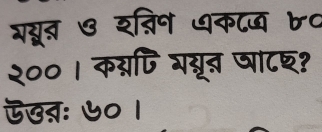 ময়ূর ও হরিণ একত্রে ৮০
২০০। কয়টি ময়ূর আছে?
উত্তর: ৬০।